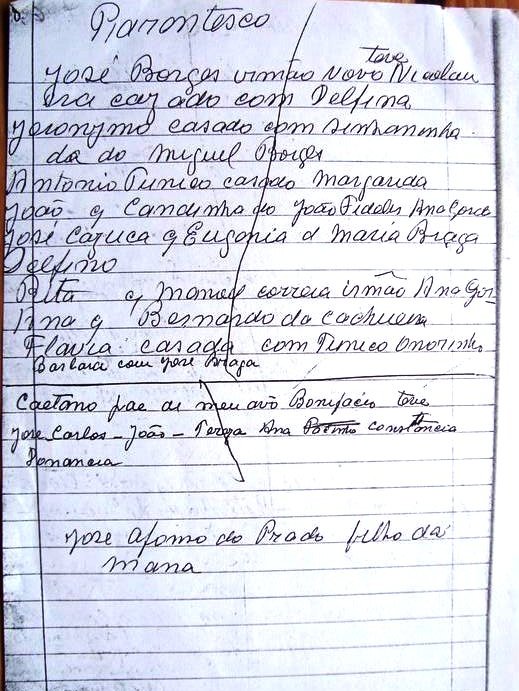 Parontesco
José Borges irmão Vovo teve Nicolau
era cazado com Delfina
Jeronymo casado com Sinhaninha
da do Miguel Borges
Antonio Tunico casado Margarida
João q Candinha do João Fideles Ana
José Cazuca q Eugonia d Maria Braça
Delfino
Rita q Manoel correia irmão Ana
Anna q Bernardo da Cachueira
Flavia casada com Tunico Onorinho
Barbara com José Braga
Caetano pae de meu avô Bonifacio teve
José Carlos - João - Tereza Ana Constancia
Venancia
José Afonso do Prado filho da
Mana